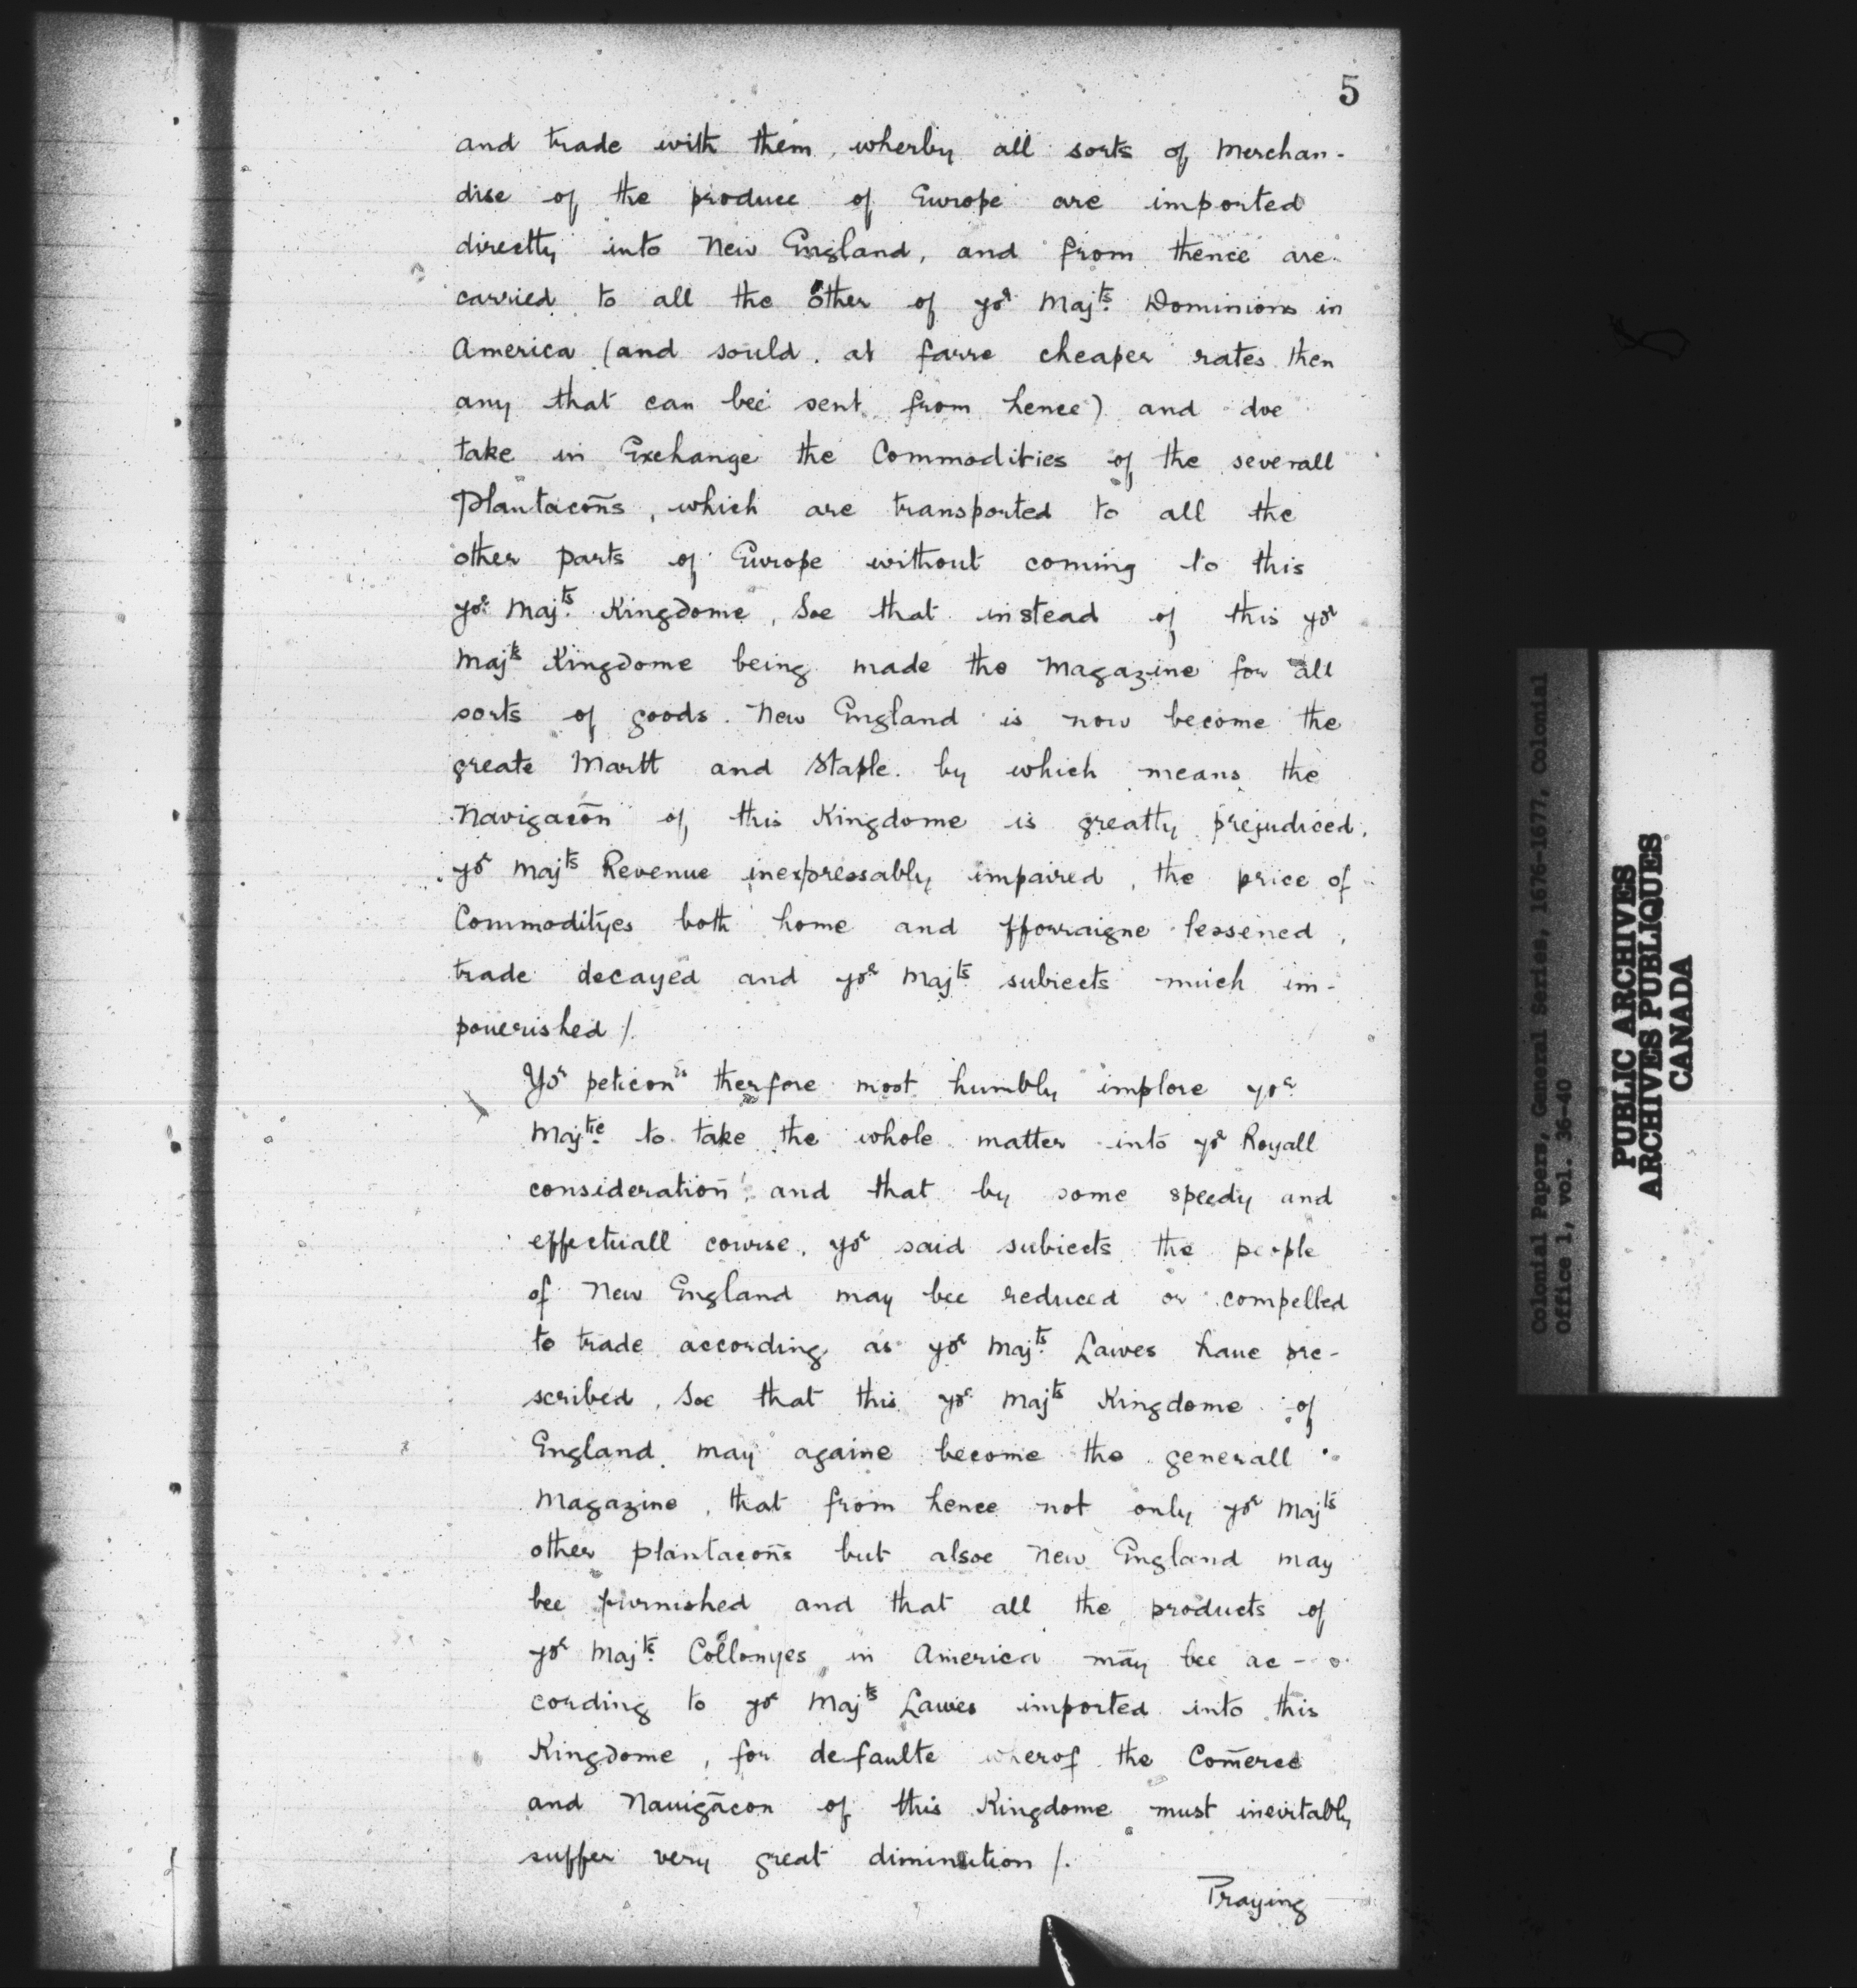 5
and trade with them, wherby all sorts of Merchan-
dise of the produce of Europe are imported
directly into New England, and from thence are
carried to all the other of yoʳ Majᵗˢ Dominions in
America (and sould at farre cheaper rates then
any that can bee sent from hence) and doe
take in Exchange the Commodities of the severall
Plantacoñs, which are transported to all the
other parts of Europe without coming to this
yoʳ Majᵗˢ Kingdome, Soe that instead of this yoʳ
Majᵗˢ Kingdome being made the Magazine for all
sorts of goods. New England is now become the
greate Martt and Staple. by which means the
Navigacōn of this Kingdome is greatly prejudiced,
yoʳ Majᵗˢ Revenue inexpressably impaired, the price of
Commodityes both home and fforraigne lessened,
trade decayed and yoʳ Majᵗˢ subiects much im-
pouerished /.
Yoʳ peticonʳˢ therfore most humbly implore yoʳ
Majᵗⁱᵉ to take the whole matter into yoʳ Royall
consideratioñ, and that by some speedy and
effectuall course, yoʳ said subiects the people
of New England may bee reduced or compelled
to trade according as yoʳ Majᵗˢ Lawes haue pre-
scribed, Soe that this yoʳ Majᵗˢ Kingdome of
England may againe become the generall
Magazine, that from hence not only yoʳ Majᵗˢ
other plantacoñs but alsoe New England may
bee furnished and that all the products of
yoʳ Majᵗˢ Collonyes in America may bee ac-
cording to yoʳ Majᵗˢ Lawes imported into this
Kingdome, for defaulte wherof the Com̄erce
and Nauigācon of this Kingdome must inevitably
suffer very great diminution /.
Praying
Colonial Papers, General Series, 1676-1677, Colonial
Office 1, vol. 36-40
PUBLIC ARCHIVES
ARCHIVES PUBLIQUES
CANADA